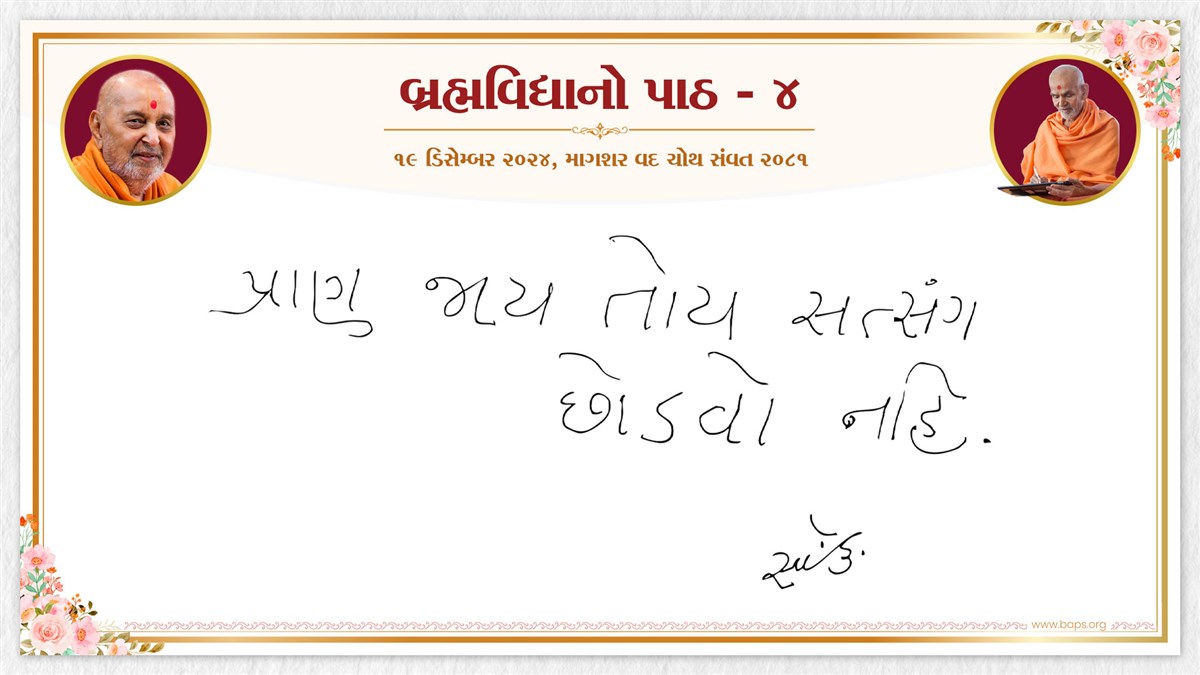 બ્રહ્મવિદ્યાનો પાઠ - ૪
૧૯ ડિસેમ્બર ૨૦૨૪, માગશર વદ ચોથ સંવત ૨૦૮૧
પ્રાણ જાય તોય સત્સંગ
છોડવો નહિ.
www.baps.org